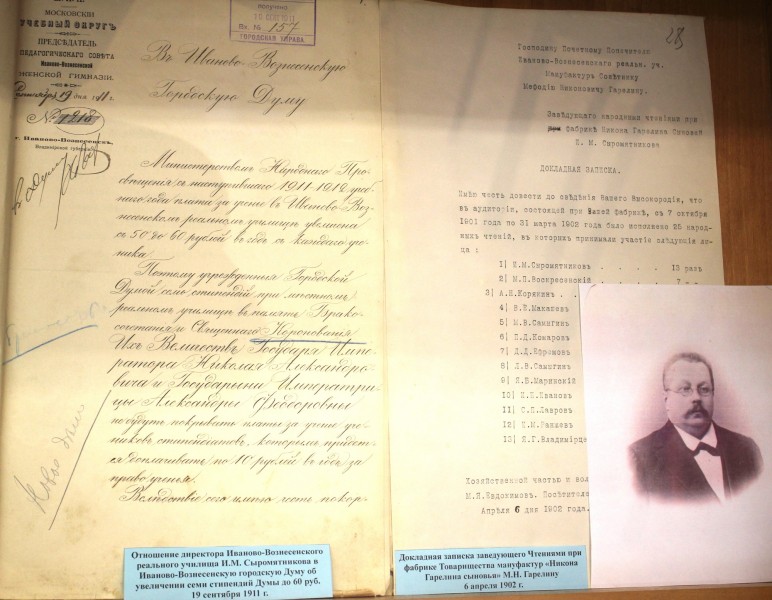 МОСКОВСКІЙ
УЧЕБНЫЙ ОКРУГЪ
ПРЕДСѢДАТЕЛЬ
ПЕДАГОГИЧЕСКАГО СОВѢТА
Иваново-Вознесенской
ЖЕНСКОЙ ГИМНАЗІИ.
19 дня 1911 г.
№ 1218
г. Иваново-Вознесенскъ,
Владимірской губерніи
получено
Вх. № 157
ГОРОДСКАЯ УПРАВА
Въ Иваново-Вознесенскую
Городскую Думу
Министерствомъ Народнаго Про-
свѣщенія съ наступившаго 1911-1912 учеб-
наго года плата за ученіе въ Иваново-Воз-
несенскомъ реальномъ училищѣ увеличена
съ 50 до 60 рублей въ годъ съ каждаго уче-
ника.
Поэтому учрежденныя Городской
Думой семь стипендій при мѣстномъ
реальномъ училищѣ въ память Брако-
сочетанія и Священнаго Коронованія
Ихъ Величествъ Государя Импе-
ратора Николая Александро-
вича и Государыни Императри-
цы Александры Ѳеодоровны
не будутъ покрывать платы за ученіе уче-
никовъ стипендіатовъ, которымъ придет-
ся доплачивать по 10 рублей въ годъ за
право ученья.
Вслѣдствіе сего имѣю честь покор-
28
Господину Почетному Попечителю
Иваново-Вознесенскаго реальн. уч.
Мануфактуръ Совѣтнику
Мефодію Никоновичу Гарелину.
Завѣдующаго народными чтеніями при
фабрикѣ Никона Гарелина Сыновей
И. М. Сыромятникова
ДОКЛАДНАЯ ЗАПИСКА.
Имѣю честь довести до свѣдѣнія Вашего Высокородія, что
въ аудиторіи, состоящей при Вашей фабрикѣ, съ 7 октября
1901 года по 31 марта 1902 года было исполнено 25 народ-
ныхъ чтеній, въ которыхъ принимали участіе слѣдующія ли-
ца :
1) И.М.Сыромятниковъ . . . . . 13 разъ
2) М.П.Воскресенскій . . . . .
3) А.Н.Корякинъ . .
4) В.Е.Макалевъ
5) М.В.Самыгинъ
6) П.Д.Комаровъ
7) Д.Д.Ефремовъ
8) Л.В.Самыгинъ
9) Я.В.Маринскій
10) Н.П.Ивановъ
11) С.П.Лавровъ
12)
13) Я.Г.Владимірц
Хозяйственной частью и вол
М.Я.Евдокимовъ. Посѣтител
Апрѣля 6 дня 1902 года.
Отношение директора Иваново-Вознесенского
реального училища И.М. Сыромятникова в
Иваново-Вознесенскую городскую Думу об
увеличении семи стипендий Думы до 60 руб.
19 сентября 1911 г.
Докладная записка заведующего Чтениями при
фабрике Товарищества мануфактур «Никона
Гарелина сыновья» М.Н. Гарелину
6 апреля 1902 г.